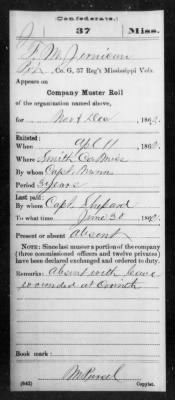 (Confederate.)
J 37 Miss.
F. M. Jernigan
Pvt., Co. G, 37 Reg't Mississippi Vols.
Appears on
Company Muster Roll
of the organization named above,
for Nov & Dec, 1862.
Enlisted:
When Apl 11, 1862.
Where Smith Co Miss
By whom Capt. Mann
Period 3 years
Last paid:
By whom Capt. Shepard
To what time June 30, 1862.
Present or absent absent
NOTE: Since last muster a portion of the company
(three commissioned officers and twelve privates)
have been declared exchanged and ordered to duty.
Remarks: Absent with leave
wounded at Corinth
Book mark:
(642) Copyist.